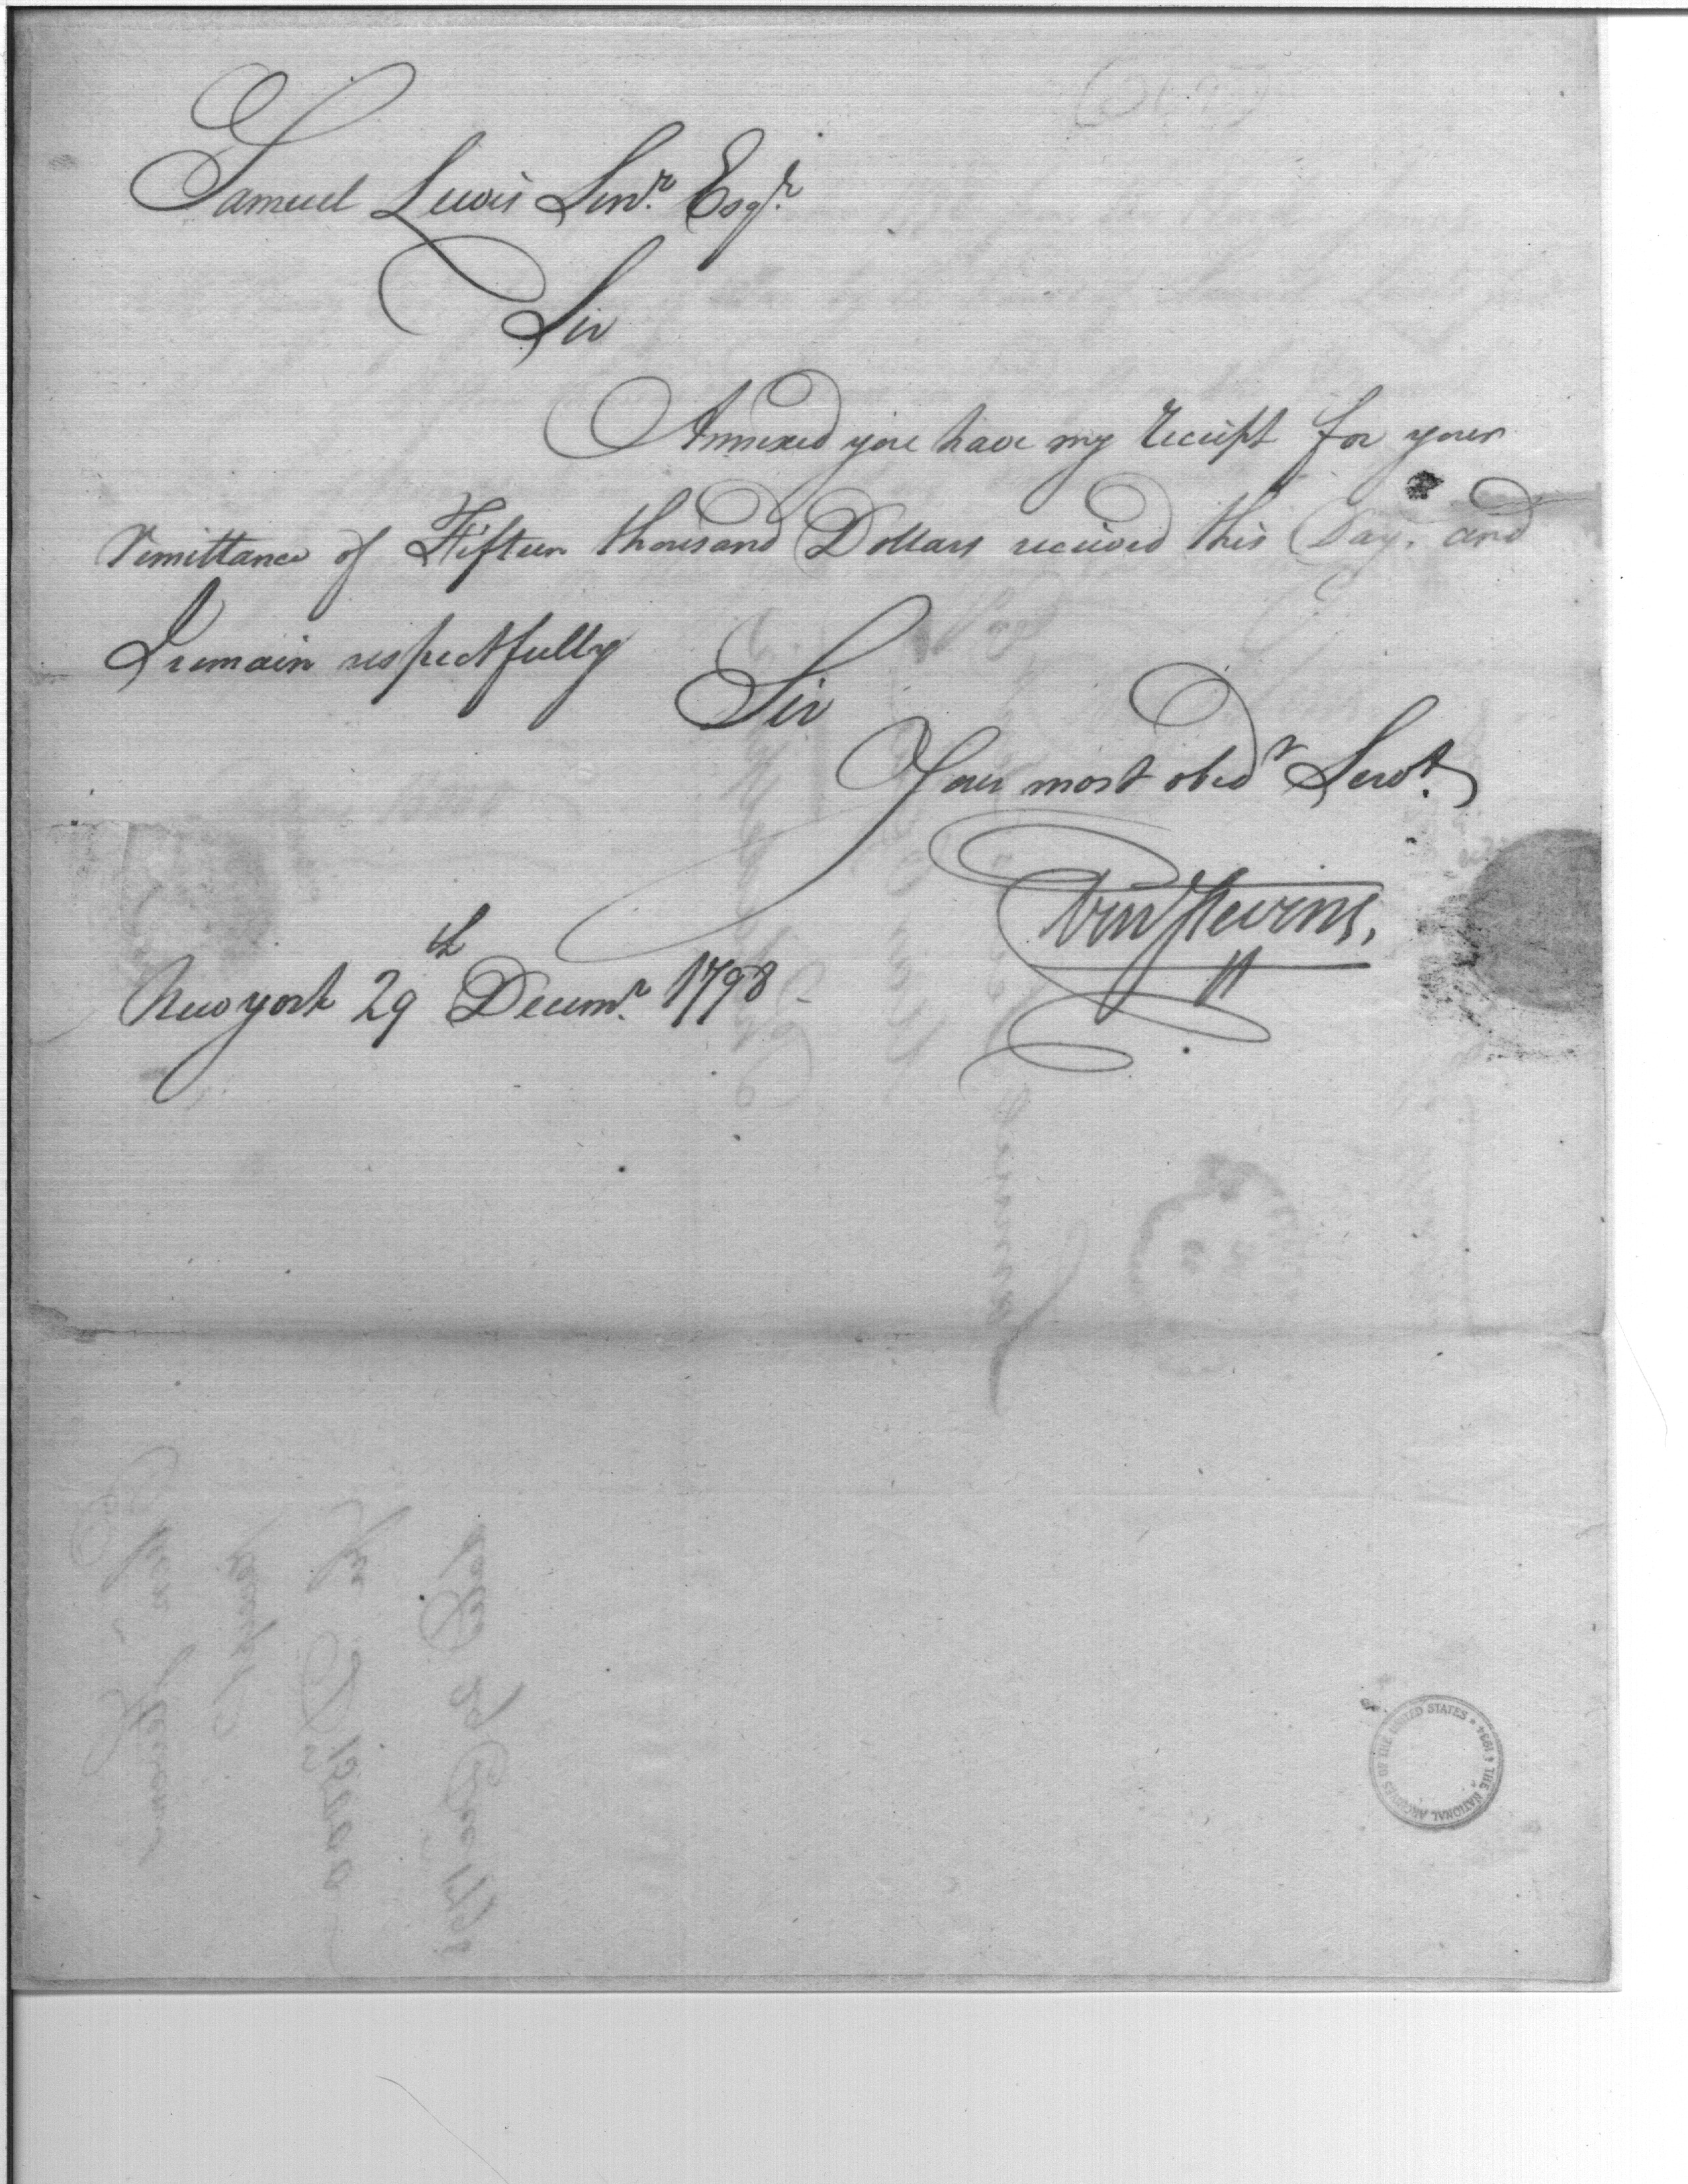 Samuel Lewis Senr. Esqr.
Sir
Annexed you have my receipt for your
remittance of Fifteen thousand Dollars received this Day. and
I remain respectfully
Sir
Your most obedt Servt.
Ebenr Stevens.
New york 29th Decemr. 1798
THE NATIONAL ARCHIVES OF THE UNITED STATES 1934